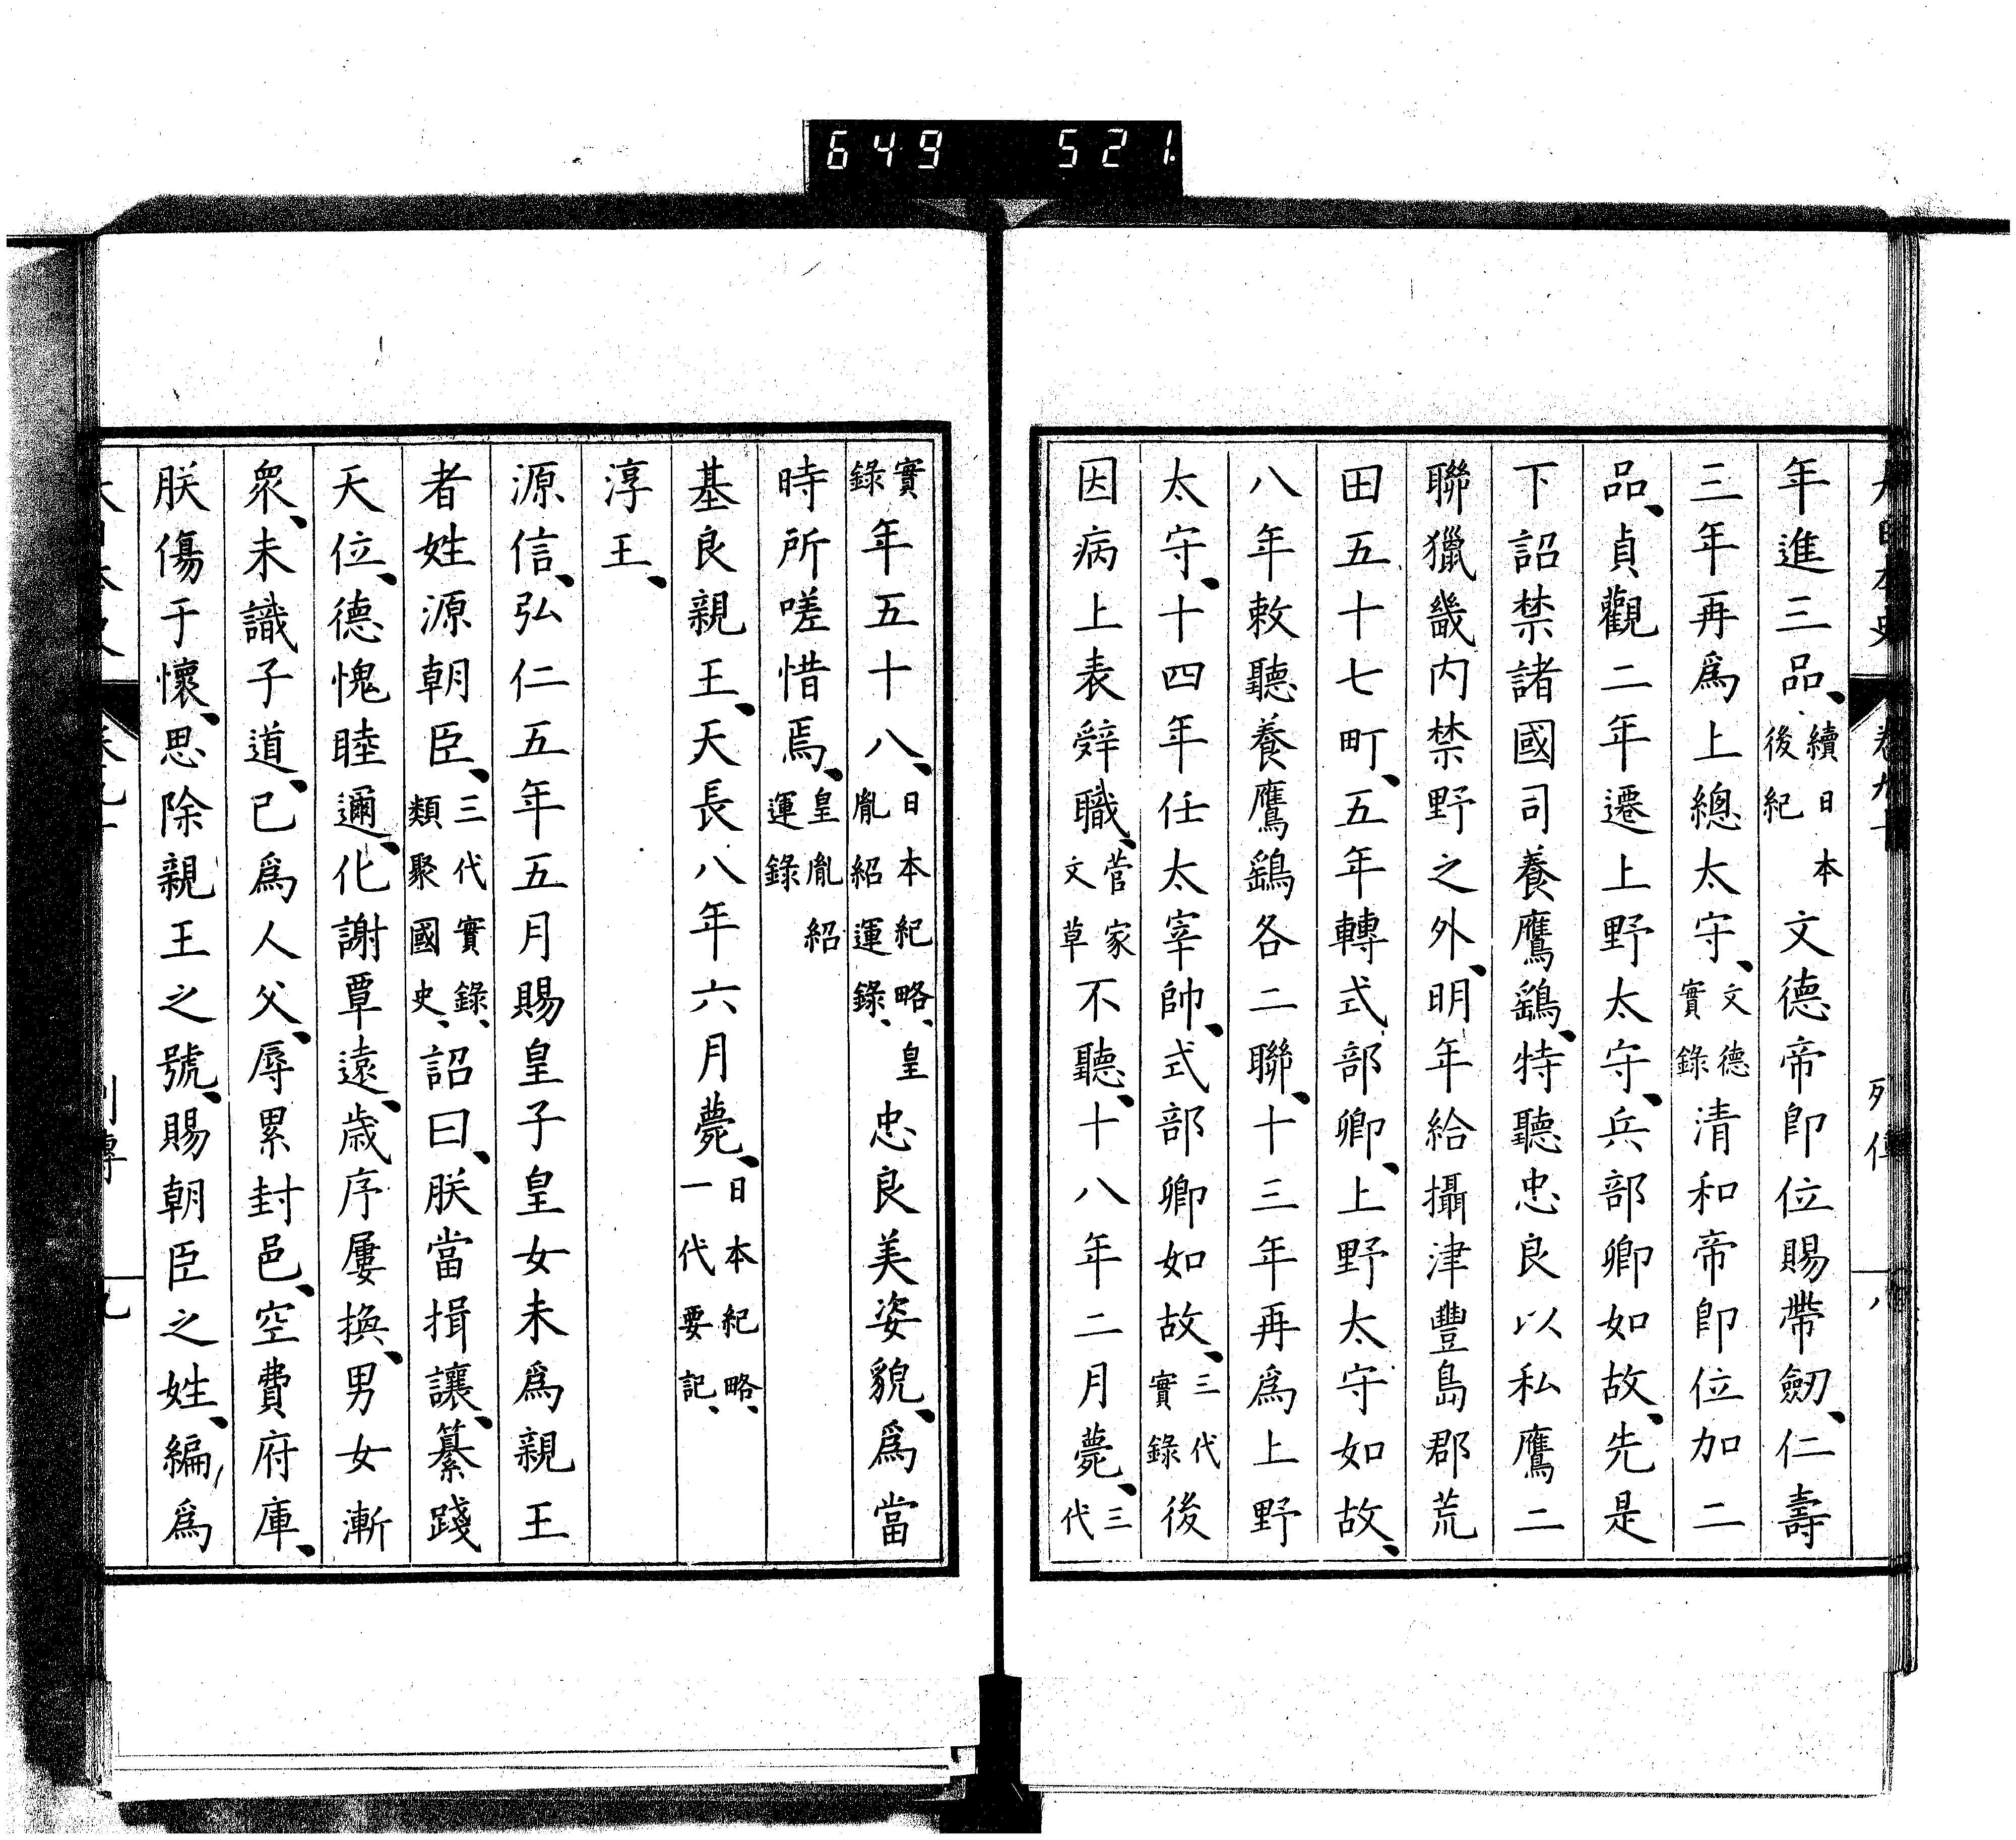 649 521.
年進三品、續日本後紀文德帝卽位賜帶劒、仁壽
三年再爲上總太守、文德實錄清和帝卽位加二
品、貞觀二年遷上野太守、兵部卿如故、先是
下詔禁諸國司養鷹鷂、特聽忠良以私鷹二
聯獵畿内禁野之外、明年給攝津豐島郡荒
田五十七町、五年轉式部卿、上野太守如故、
八年敕聽養鷹鷂各二聯、十三年再爲上野
太守、十四年任太宰帥、式部卿如故、三代實錄後
因病上表辤職、菅家文草不聽、十八年二月薨、三代
實錄年五十八、日本紀略、皇胤紹運錄、忠良美姿貌、爲當
時所嗟惜焉、皇胤紹運錄
基良親王、天長八年六月薨、日本紀略、一代要記、
淳王、
源信、弘仁五年五月賜皇子皇女未爲親王
者姓源朝臣、三代實錄、類聚國史、詔曰、朕當揖讓、纂踐
天位、德愧睦邇、化謝覃遠、歳序屢換、男女漸
衆、未識子道、已爲人父、辱累封邑、空費府庫、
朕傷于懷、思除親王之號、賜朝臣之姓、編爲